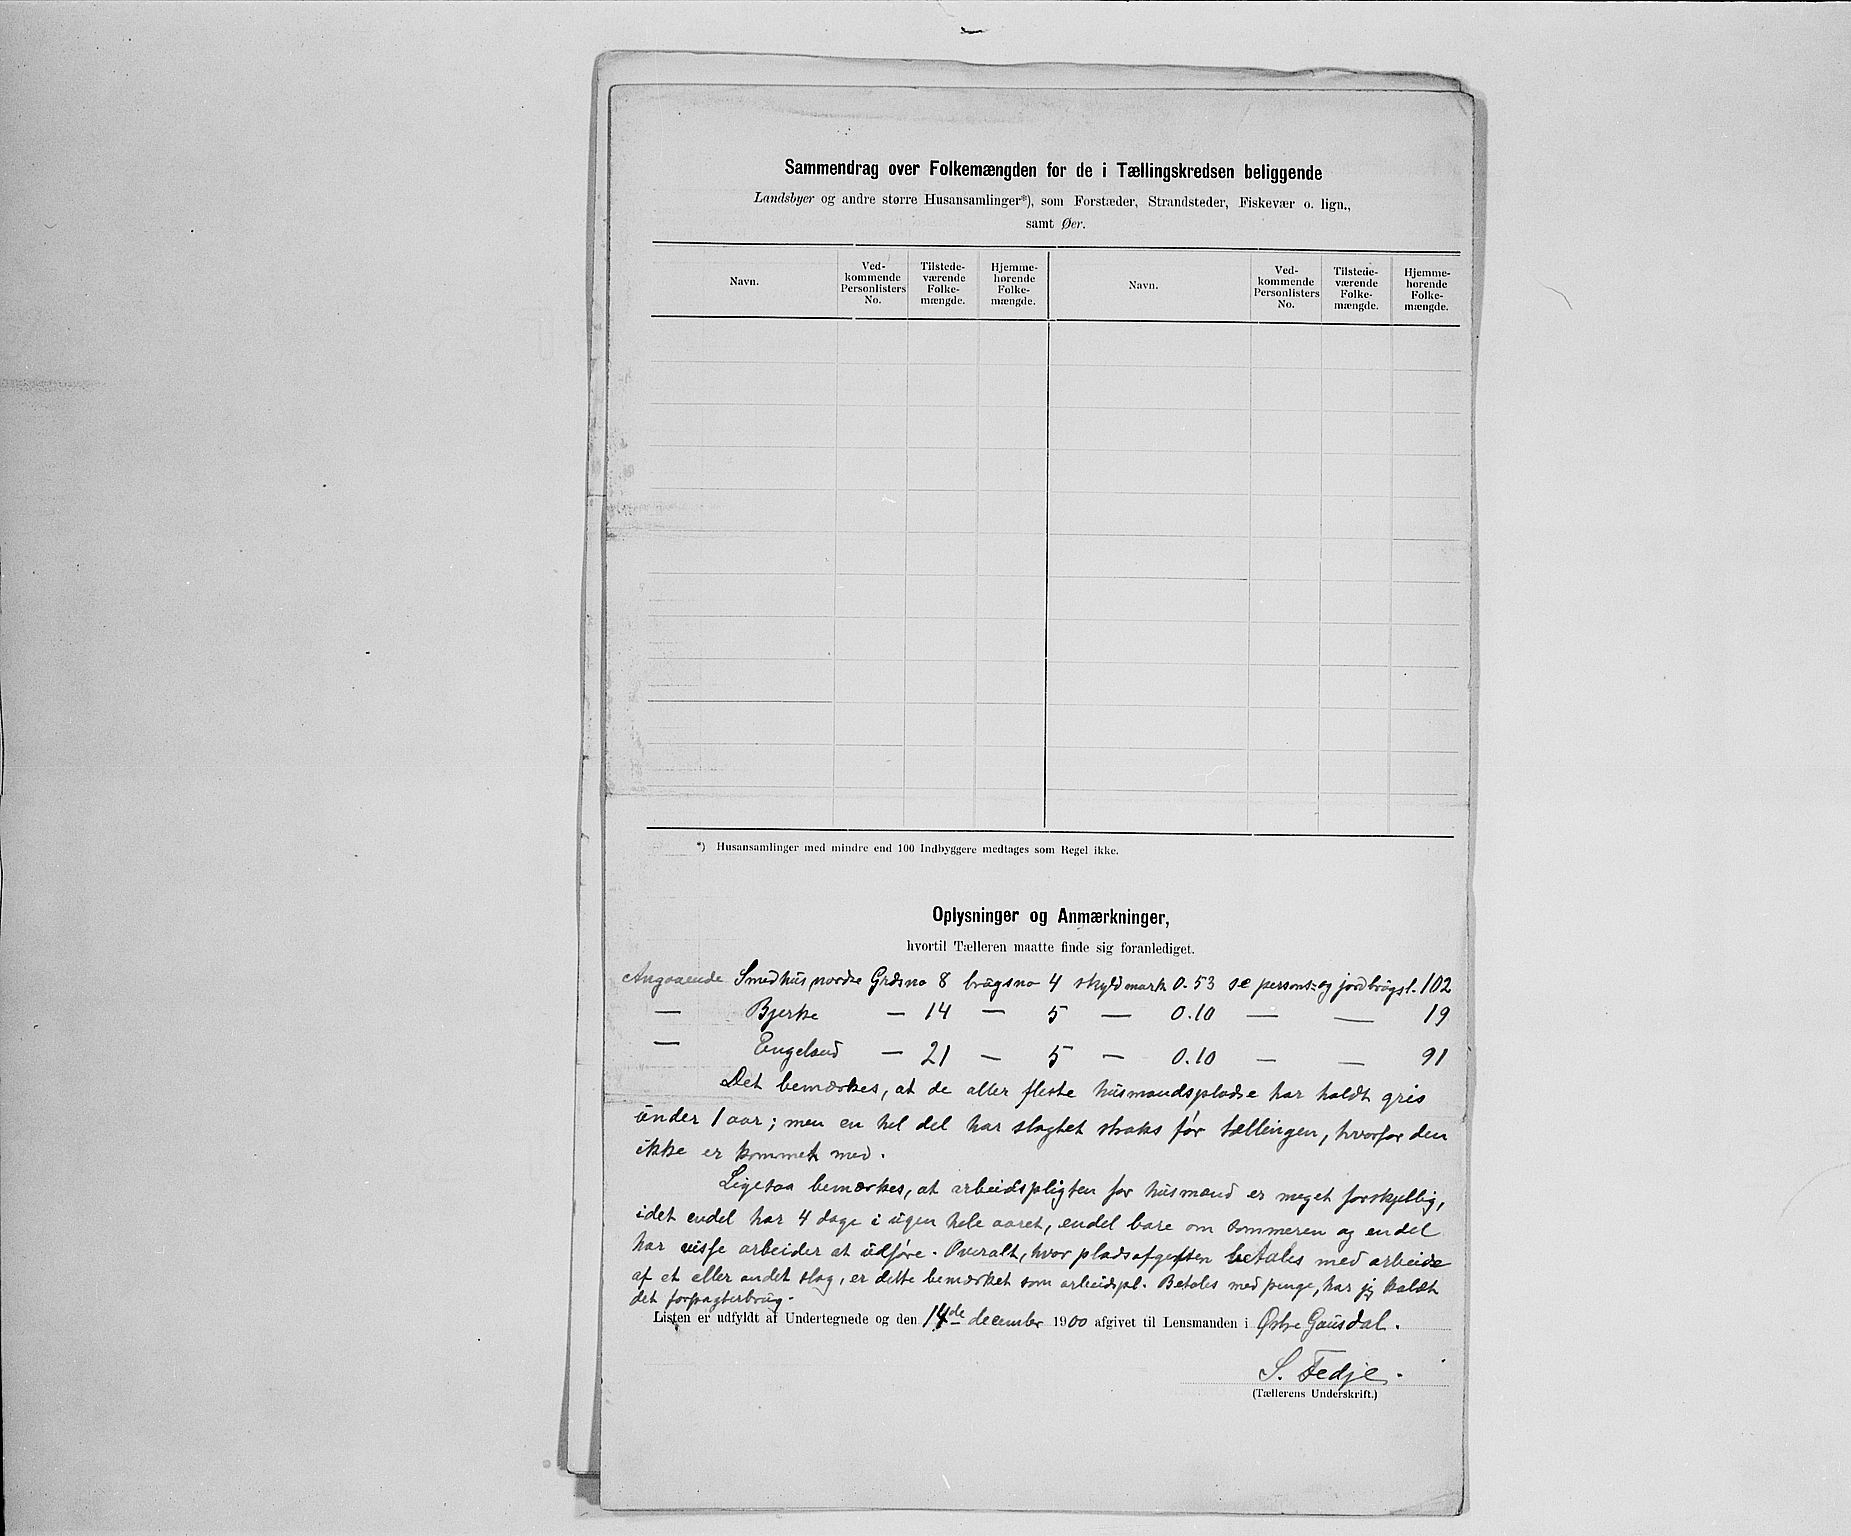 Sammendrag over Folkemængden for de i Tællingskredsen beliggende
Landsbyer og andre større Husansamlinger*), som Forstæder, Strandsteder, Fiskevær o. lign.,
samt Øer.
Navn.
Ved-
kommende
Personlisters
No.
Tilstede-
værende
Folke-
mængde.
Hjemme-
hørende
Folke-
mængde.
Navn.
Ved-
kommende
Personlisters
No.
Tilstede-
værende
Folke-
mængde.
Hjemme-
hørende
Folke-
mængde.
*) Husansamlinger med mindre end 100 Indbyggere medtages som Regel ikke.
Oplysninger og Anmærkninger,
hvortil Tælleren maatte finde sig foranlediget.
Angaaende Smedhus, nordre Grdsno 8 brugsno 4 skyldmark 0.53 se persons- og jordbrugsl. 102
— Bjerke — 14 — 5 — 0.10 — — 19
— Engelund — 21 — 5 — 0.10 — — 91
Det bemærkes, at de aller fleste husmandspladse har holdt gris
under 1 aar; men en hel del har slagtet straks før tællingen, hvorfor den
ikke er kommet med.
Ligesaa bemærkes, at arbeidspligten for husmænd er meget forskjellig,
idet endel har 4 dage i ugen hele aaret, endel bare om sommeren og endel
har visse arbeider at udføre. Overalt, hvor pladsafgiften betales med arbeide
af et eller andet slag, er dette bemærket som arbeidspl. Betales med penge, har jeg kaldt
det forpagterbrug.
Listen er udfyldt af Undertegnede og den 14de december 1900 afgivet til Lensmanden i Østre Gausdal.
S. Fedje.
(Tællerens Underskrift.)